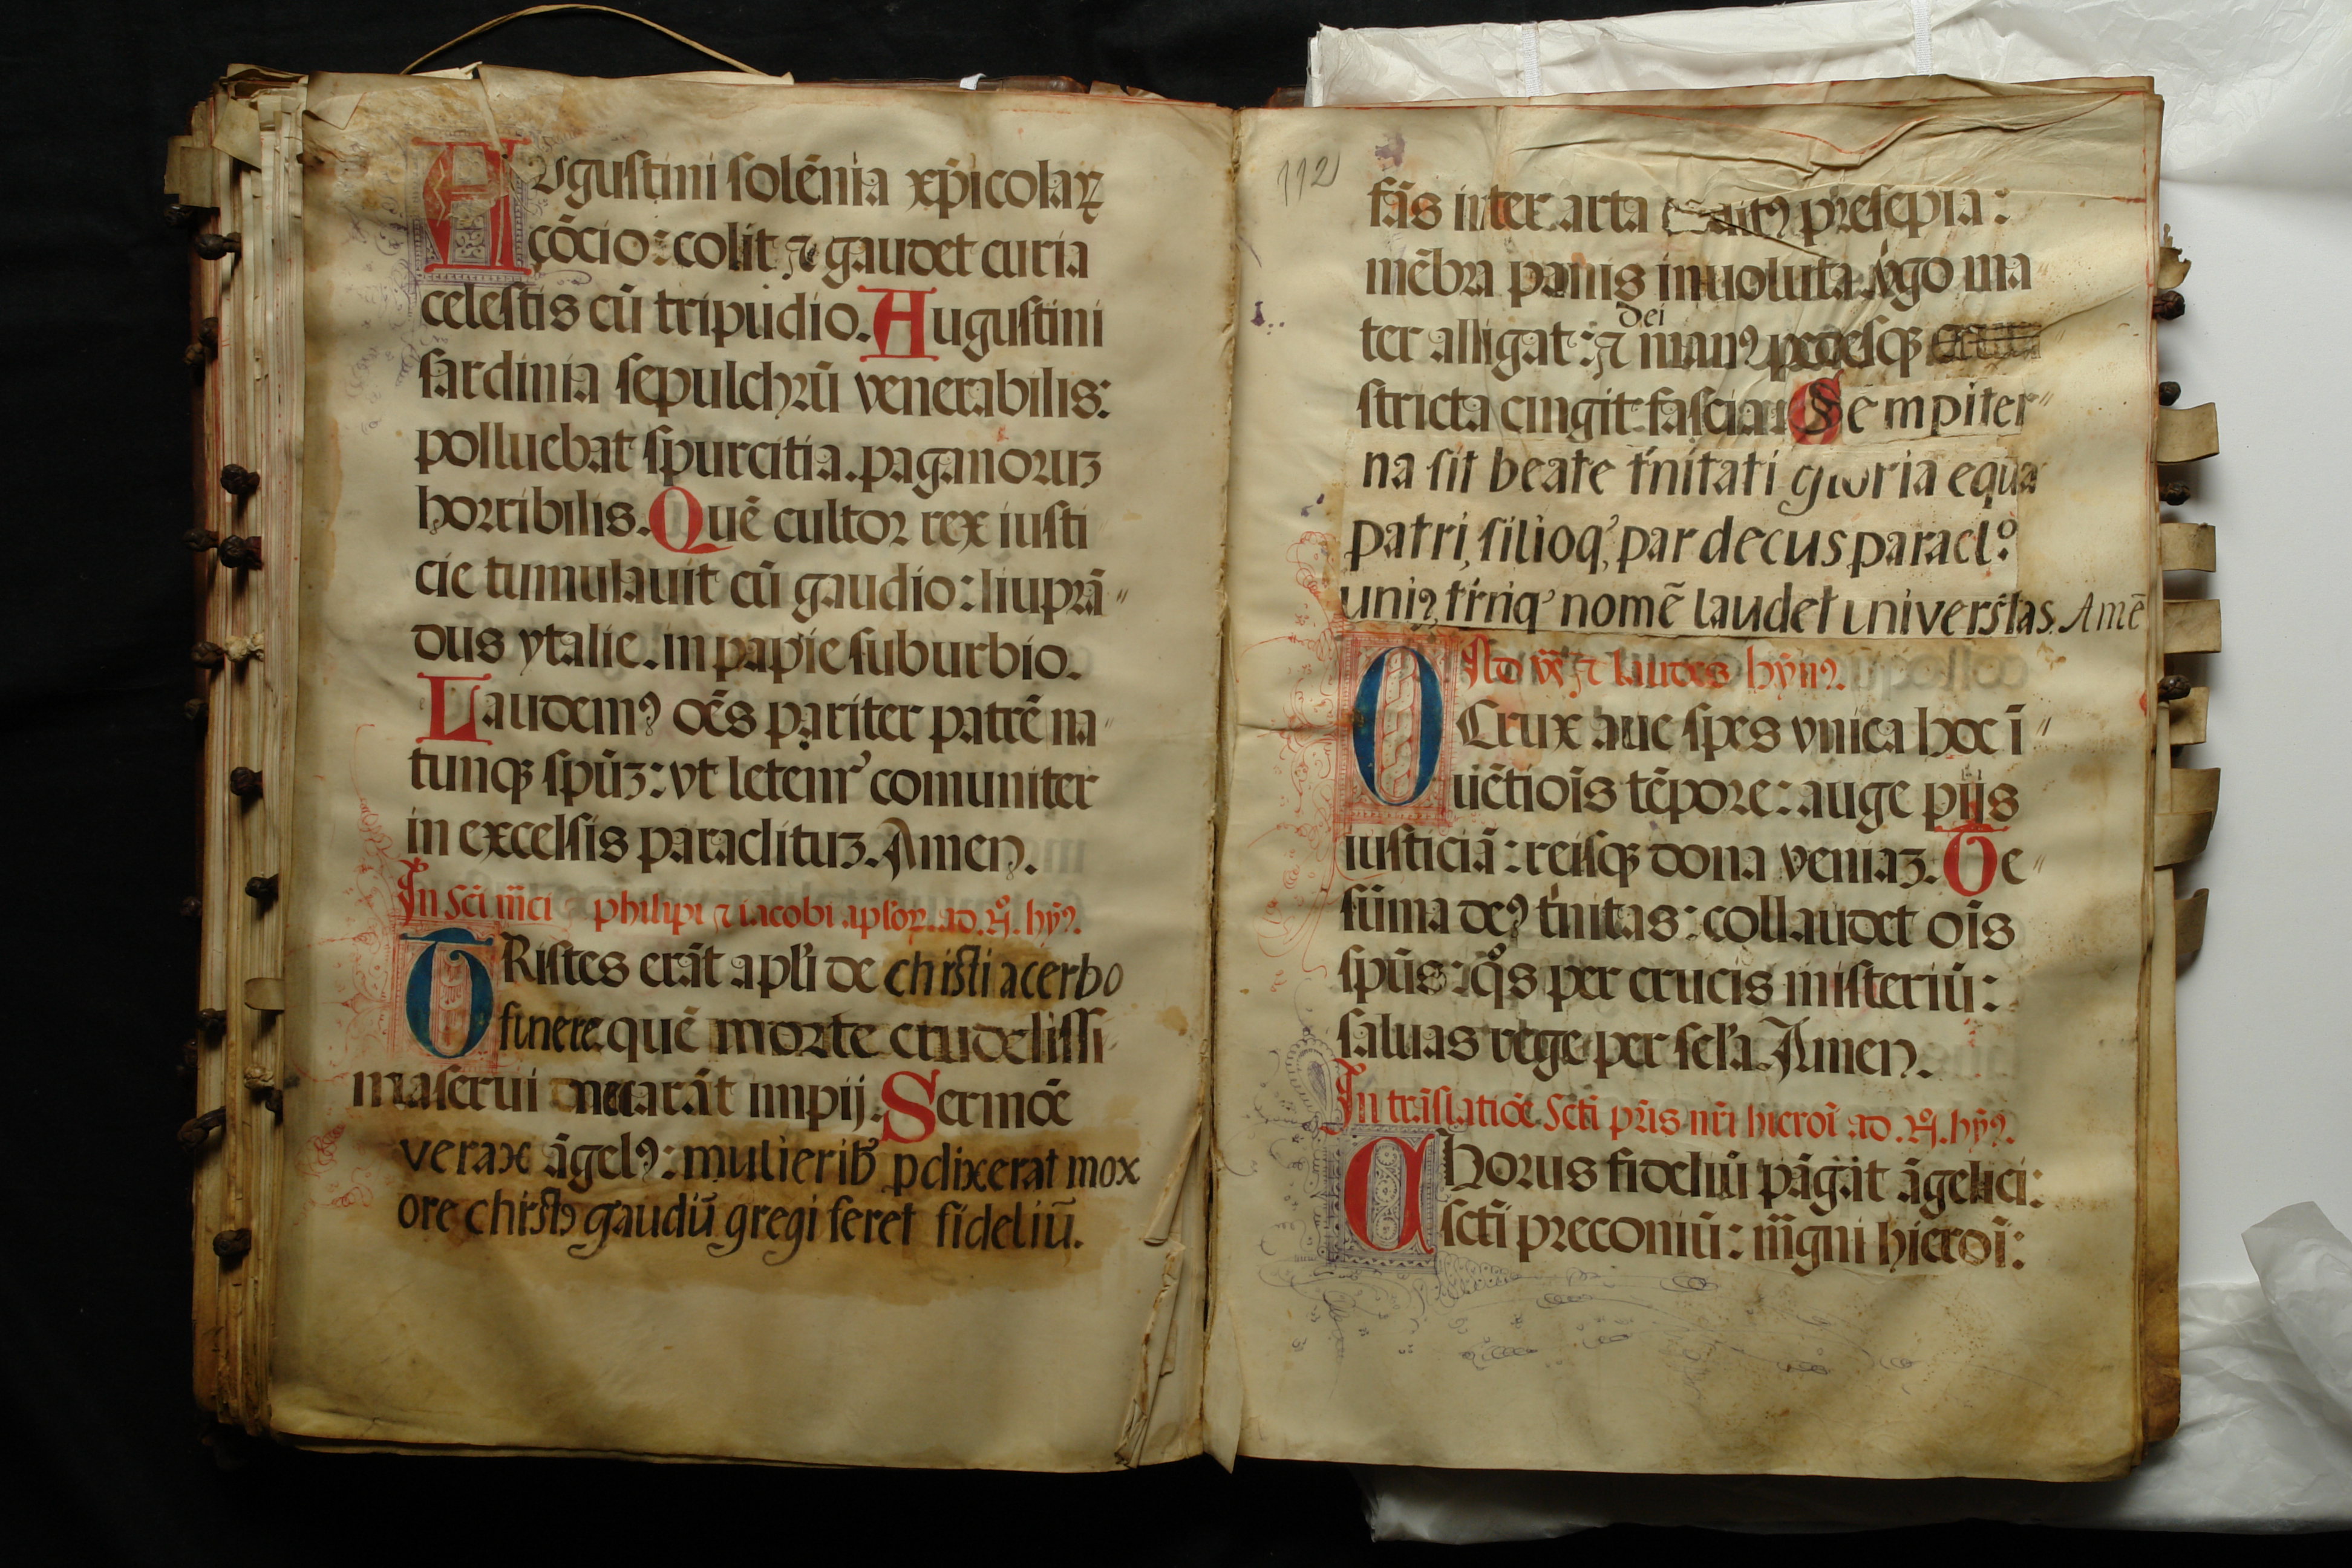 Avgustini solēnia xp̄icolaꝝ
cōcio: colit ⁊ gaudet curia
celestis cū tripudio. Augustini
sardinia sepulchrū venerabilis:
polluebat spurcitia. paganoruʒ
horribilis. Quē cultor rex iusti
cie tumulauit cū gaudio: liuprā"
dus ytalie. in papie suburbio.
Laudemꝰ oēs pariter patrē na"
tunqꝫ spūʒ: vt letenr' comuniter
in excelsis paraclituʒ. Amen.
philipi ⁊ iacobi aplõꝝ. ad. hȳꝰ.
TRistes erāt apl'i de christi acerbo
funere quē morte crudelissi
ma serui necarāt impij. Sermōe
verax āgelꝰ: mulierib' p̄dixerat mox
ore christꝰ gaudiū gregi feret fideliū.
112
fās inter arta presepia:
mēbra panis inuoluta v̓go ma"
dei
ter alligat: ⁊ manꝰ pedesqꝫ
stricta cingit fascia. Sempiter"
na sit beate tⁱnitati gloria equa
patri, filioq', par decus paracl.º
uniꝰ, tⁱniq' nomē laudet universⁱtas. Amē
Ad vꝝ ⁊ laudes hȳnꝰ.
O Crux aue spes vnica hoc ī"
uiētiois tēpore: auge piis
iusticiā: reisqꝫ dona veniaʒ. Te"
sūma deꝰ tⁱnitas: collaudet ois
spūs: q̊s per crucis misteriū:
saluas rege per sel'a. Amen.
In trāslatiōe Scti p̄ris nr̄i hieroī ad. hȳꝰ.
CHorus fideliū pāgāt āgelici:
scti preconiū: m̄gni hieroī: